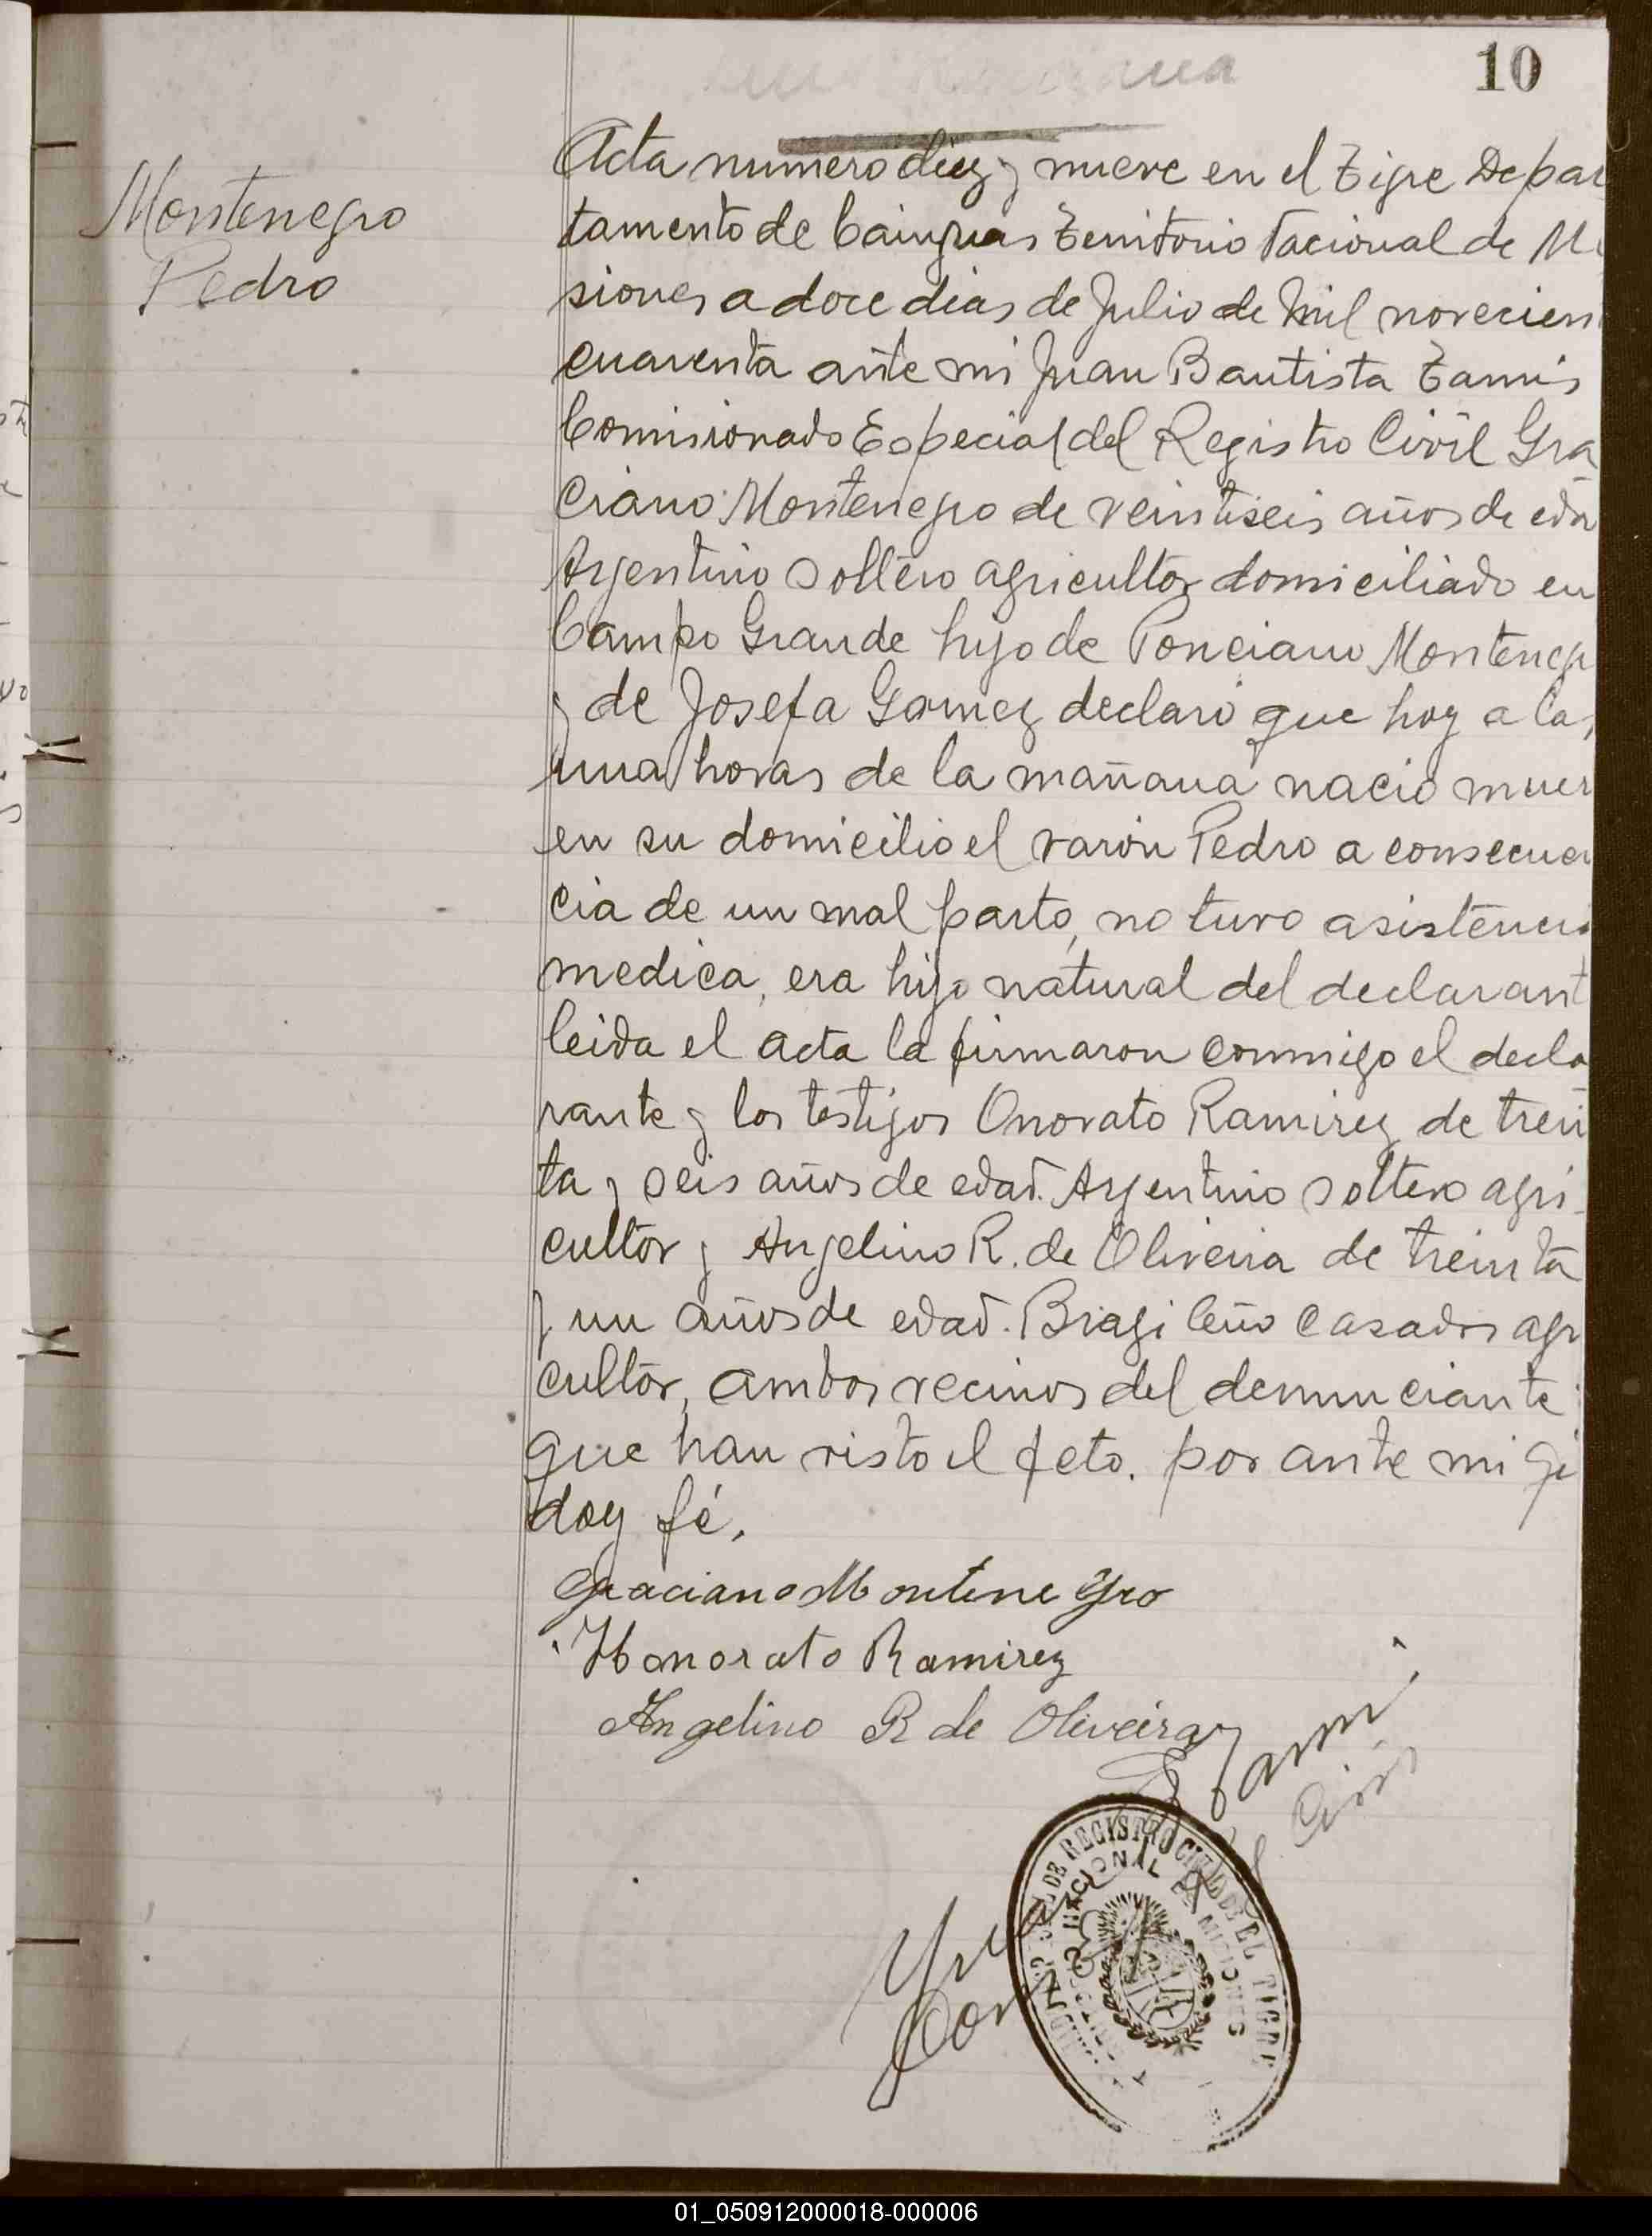 10
Montenegro
Pedro
Acta numero diez y nueve en el Tigre Depar
tamento de Cainguas Territorio Nacional de Mi
siones a doce dias de Julio de mil novecien
cuarenta ante mi Juan Bautista Tamis
Comisionado Especial del Registro Civil Gra
ciano Montenegro de veintiseis años de eda
Argentino soltero agricultor domiciliado en
Campo Grande hijo de Ponciano Montenegr
y de Josefa Gomez declaró que hoy a las
una horas de la mañana nacio muer
en su domicilio el varón Pedro a consecuen
cia de un mal parto, no tuvo asistenci
medica, era hijo natural del declarant
leida el acta la firmaron conmigo el decla
rante y los testigos Onorato Ramirez de trein
ta y seis años de edad. Argentino soltero agri
cultor y Angelino R. de Oliveira de treinta
y un años de edad. Brasileño casados agr
cultor, ambos vecinos del denunciante
que han visto el feto. por ante mi qe
doy fé.
Graciano Montenegro
Honorato Ramirez
Angelino R de Oliveira
Juan B Tami
REGISTRO CIVIL DE EL TIGRE
NACIONAL DE MISIONES
01_050912000018-000006